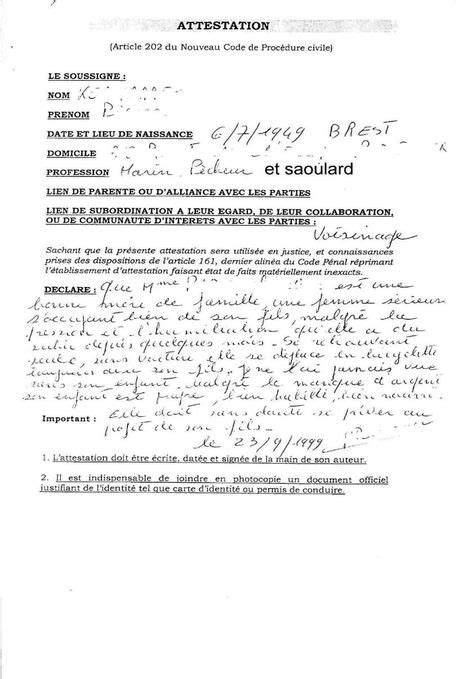 ATTESTATION
(Article 202 du Nouveau Code de Procédure civile)
LE SOUSSIGNE :
NOM
PRENOM
DATE ET LIEU DE NAISSANCE 6/7/1949 BREST
DOMICILE
PROFESSION Marin Pêcheur et saoulard
LIEN DE PARENTE OU D'ALLIANCE AVEC LES PARTIES
LIEN DE SUBORDINATION A LEUR EGARD, DE LEUR COLLABORATION,
OU DE COMMUNAUTE D'INTERETS AVEC LES PARTIES :
Voisinage
Sachant que la présente attestation sera utilisée en justice, et connaissances
prises des dispositions de l'article 161, dernier alinéa du Code Pénal réprimant
l'établissement d'attestation faisant état de faits matériellement inexacts.
DECLARE : Que Mme est une
bonne mère de famille, une femme sérieuse
s'occupant bien de son fils, malgré la
pression et l'humiliation qu'elle a du
subir depuis quelques mois. Se retrouvant
seule, sans voiture elle se déplace en bicyclette
toujours avec son fils. Je ne l'ai jamais vue
sans son enfant. Malgré le manque d'argent
son enfant est propre, bien habillé, bien nourri.
Important : Elle doit sans doute se priver au
profit de son fils.
le 23/9/1999
1. L'attestation doit être écrite, datée et signée de la main de son auteur.
2. Il est indispensable de joindre en photocopie un document officiel
justifiant de l'identité tel que carte d'identité ou permis de conduire.